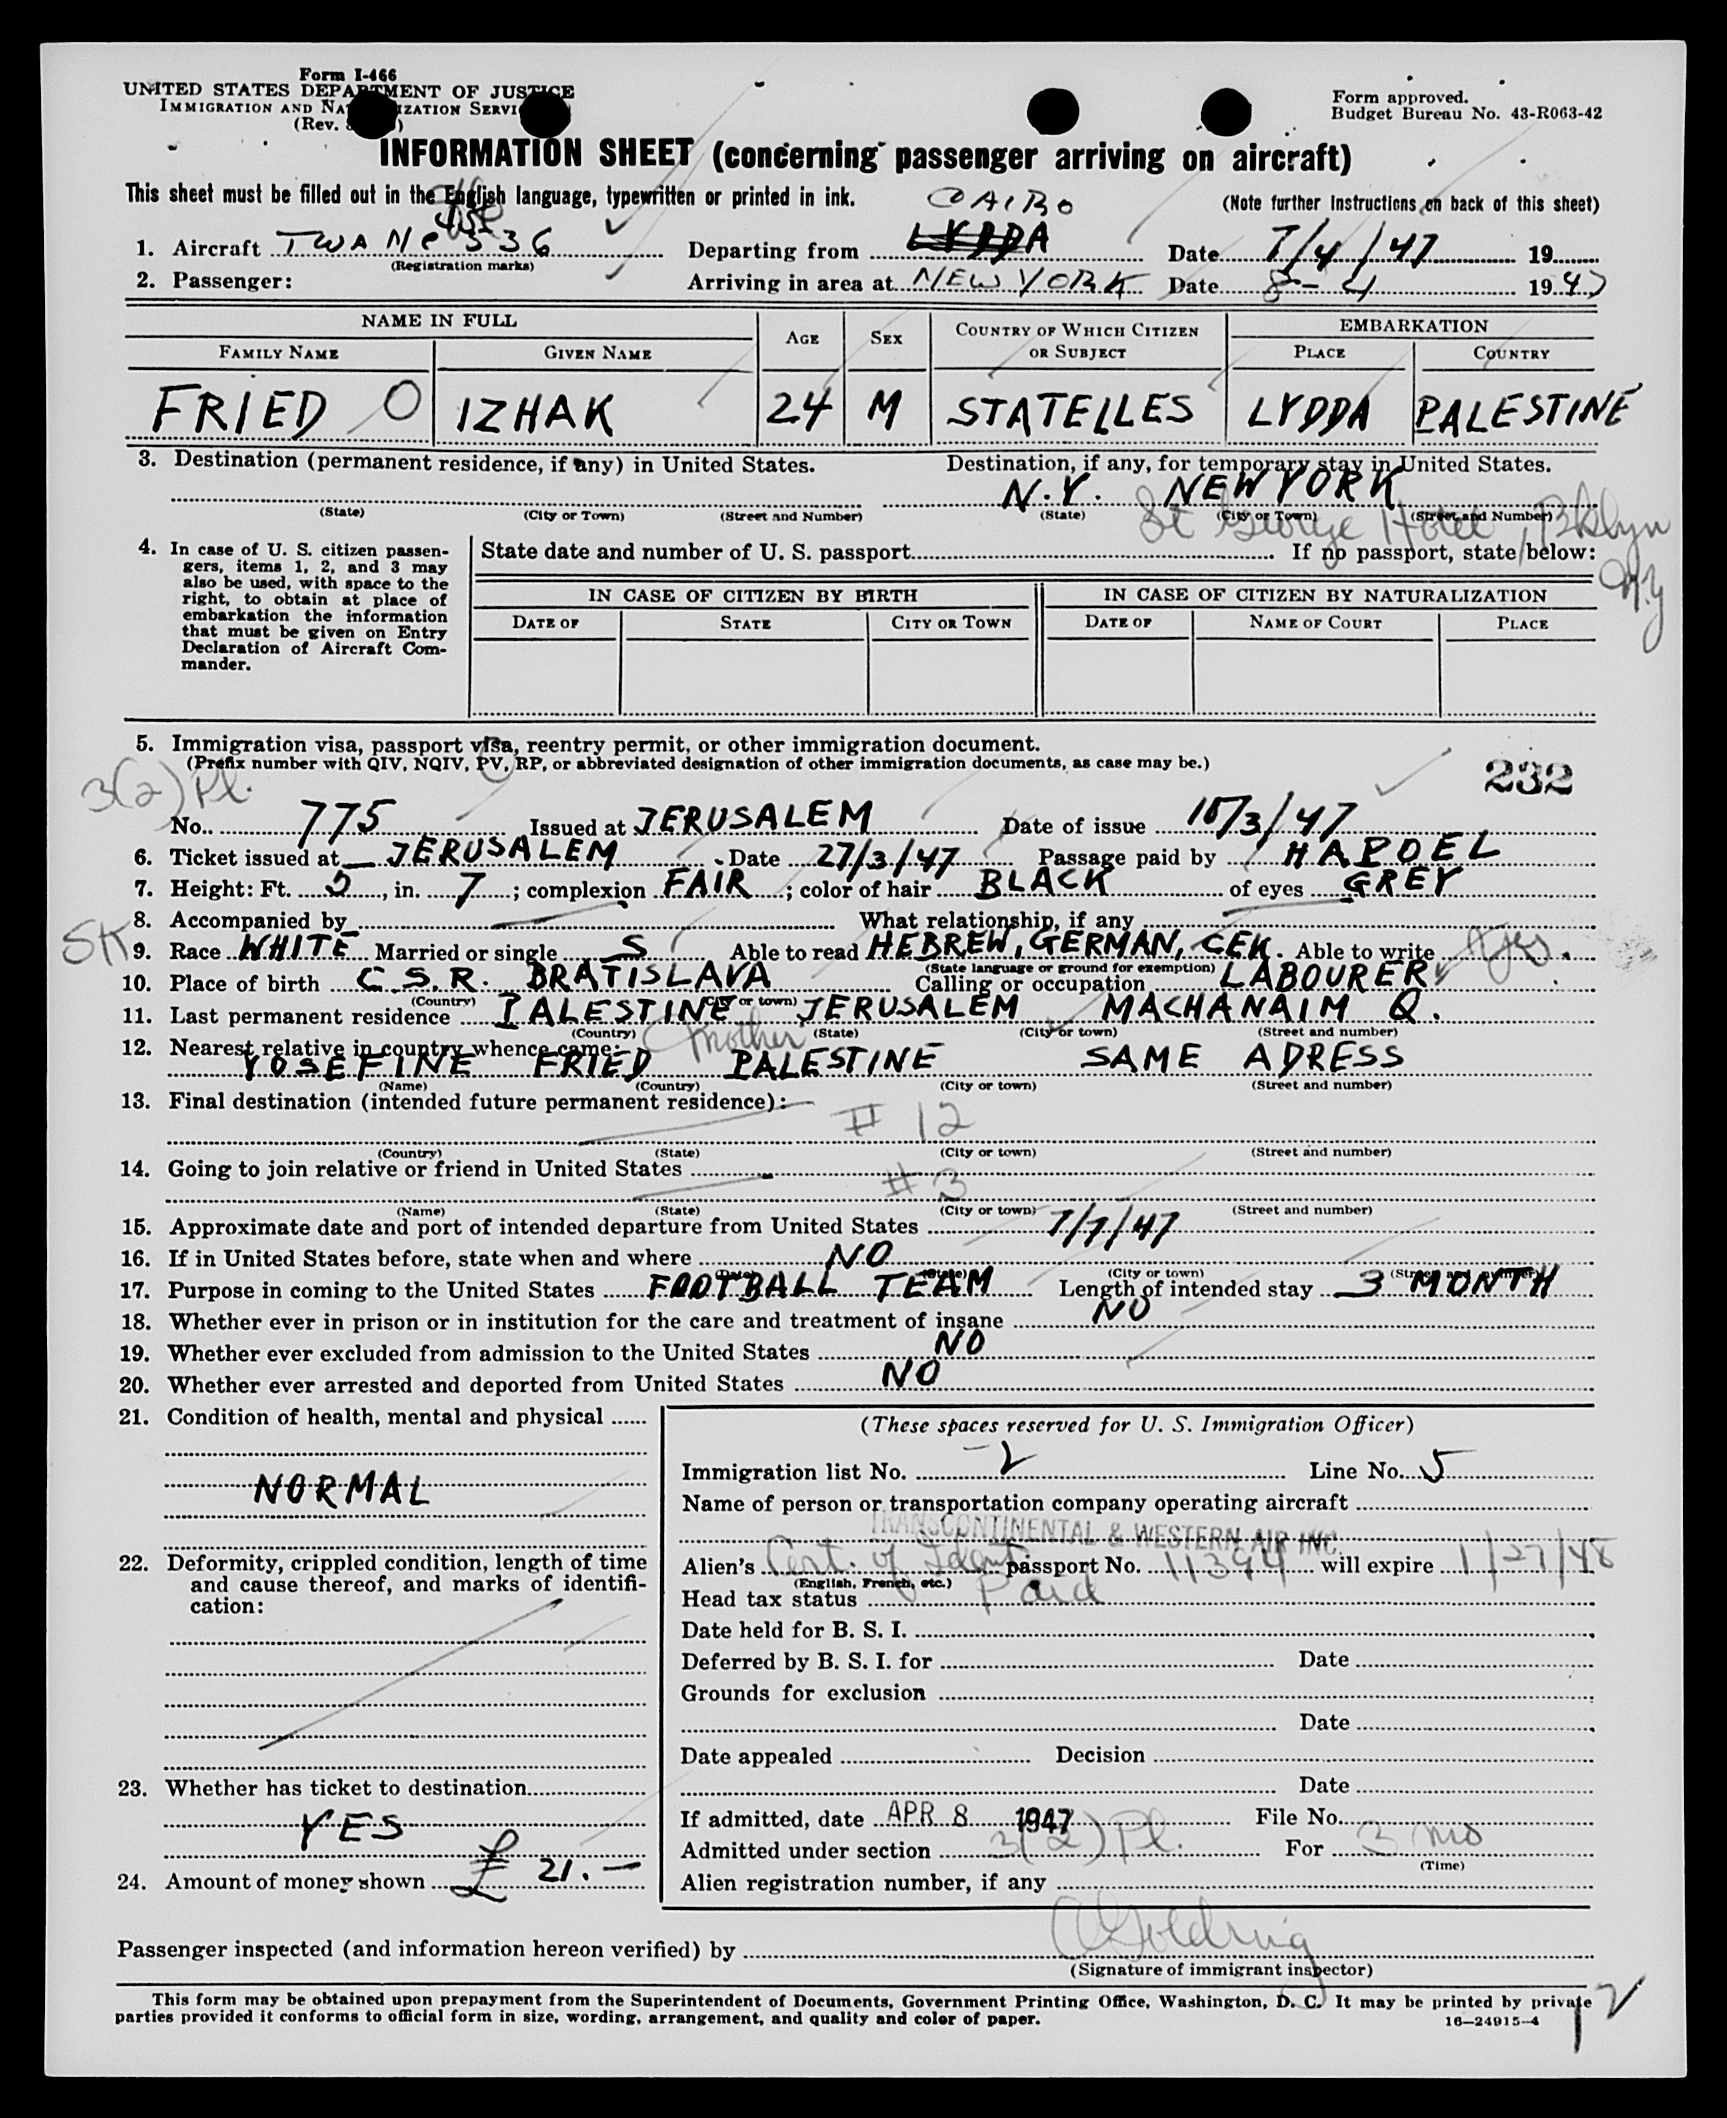 Form I-466
UNITED STATES DEPARTMENT OF JUSTICE
IMMIGRATION AND NATURALIZATION SERVICE
(Rev.
Form approved.
Budget Bureau No. 43-R063-42
INFORMATION SHEET (concerning passenger arriving on aircraft)
This sheet must be filled out in the English language, typewritten or printed in ink.
(Note further instructions on back of this sheet)
CAIRO
1. Aircraft TWA NC 536 Departing from LYDDA Date 7/4/47 19
(Registration marks)
2. Passenger: Arriving in area at NEW YORK Date 8-4 1947
NAME IN FULL AGE SEX COUNTRY OF WHICH CITIZEN OR SUBJECT EMBARKATION
FAMILY NAME GIVEN NAME PLACE COUNTRY
FRIED O IZHAK 24 M STATELLES LYDDA PALESTINE
3. Destination (permanent residence, if any) in United States. Destination, if any, for temporary stay in United States.
N.Y. NEW YORK
(State) (City or Town) (Street and Number) (State) (City or Town) (Street and Number)
St George Hotel, Bklyn
N.Y
4. In case of U. S. citizen passen-
gers, items 1, 2, and 3 may
also be used, with space to the
right, to obtain at place of
embarkation the information
that must be given on Entry
Declaration of Aircraft Com-
mander.
State date and number of U. S. passport If no passport, state below:
IN CASE OF CITIZEN BY BIRTH IN CASE OF CITIZEN BY NATURALIZATION
DATE OF STATE CITY OR TOWN DATE OF NAME OF COURT PLACE
5. Immigration visa, passport visa, reentry permit, or other immigration document.
(Prefix number with QIV, NQIV, PV, RP, or abbreviated designation of other immigration documents, as case may be.)
3(2) Pl.
232
No. 775 Issued at JERUSALEM Date of issue 18/3/47
6. Ticket issued at JERUSALEM Date 27/3/47 Passage paid by HAPOEL
7. Height: Ft. 5, in. 7; complexion FAIR; color of hair BLACK of eyes GREY
8. Accompanied by What relationship, if any
SK
9. Race WHITE Married or single S Able to read HEBREW, GERMAN, CEK. Able to write yes.
(State language or ground for exemption)
10. Place of birth C.S.R. BRATISLAVA Calling or occupation LABOURER
(Country) (City or town)
11. Last permanent residence PALESTINE JERUSALEM MACHANAIM Q.
(Country) (State) (City or town) (Street and number)
12. Nearest relative in country whence came: mother
YOSEFINE FRIED PALESTINE SAME ADRESS
(Name) (Country) (City or town) (Street and number)
13. Final destination (intended future permanent residence):
# 12
(Country) (State) (City or town) (Street and number)
14. Going to join relative or friend in United States
# 3
(Name) (State) (City or town) (Street and number)
15. Approximate date and port of intended departure from United States 7/7/47
16. If in United States before, state when and where NO
(Date) (State) (City or town) (Street and number)
17. Purpose in coming to the United States FOOTBALL TEAM Length of intended stay 3 MONTH
18. Whether ever in prison or in institution for the care and treatment of insane NO
19. Whether ever excluded from admission to the United States NO
20. Whether ever arrested and deported from United States NO
21. Condition of health, mental and physical
NORMAL
22. Deformity, crippled condition, length of time
and cause thereof, and marks of identifi-
cation:
23. Whether has ticket to destination
YES
24. Amount of money shown £ 21.-
(These spaces reserved for U. S. Immigration Officer)
Immigration list No. 2 Line No. 5
Name of person or transportation company operating aircraft
TRANSCONTINENTAL & WESTERN AIR INC.
Alien's Cert. of Ident. passport No. 11394 will expire 1/27/48
(English, French, etc.)
Head tax status Paid
Date held for B. S. I.
Deferred by B. S. I. for Date
Grounds for exclusion
Date
Date appealed Decision
Date
If admitted, date APR 8 1947 File No.
Admitted under section 3(2) Pl. For 3 mo
(Time)
Alien registration number, if any
Passenger inspected (and information hereon verified) by Goldring
(Signature of immigrant inspector)
This form may be obtained upon prepayment from the Superintendent of Documents, Government Printing Office, Washington, D. C. It may be printed by private
parties provided it conforms to official form in size, wording, arrangement, and quality and color of paper.
16-24915-4